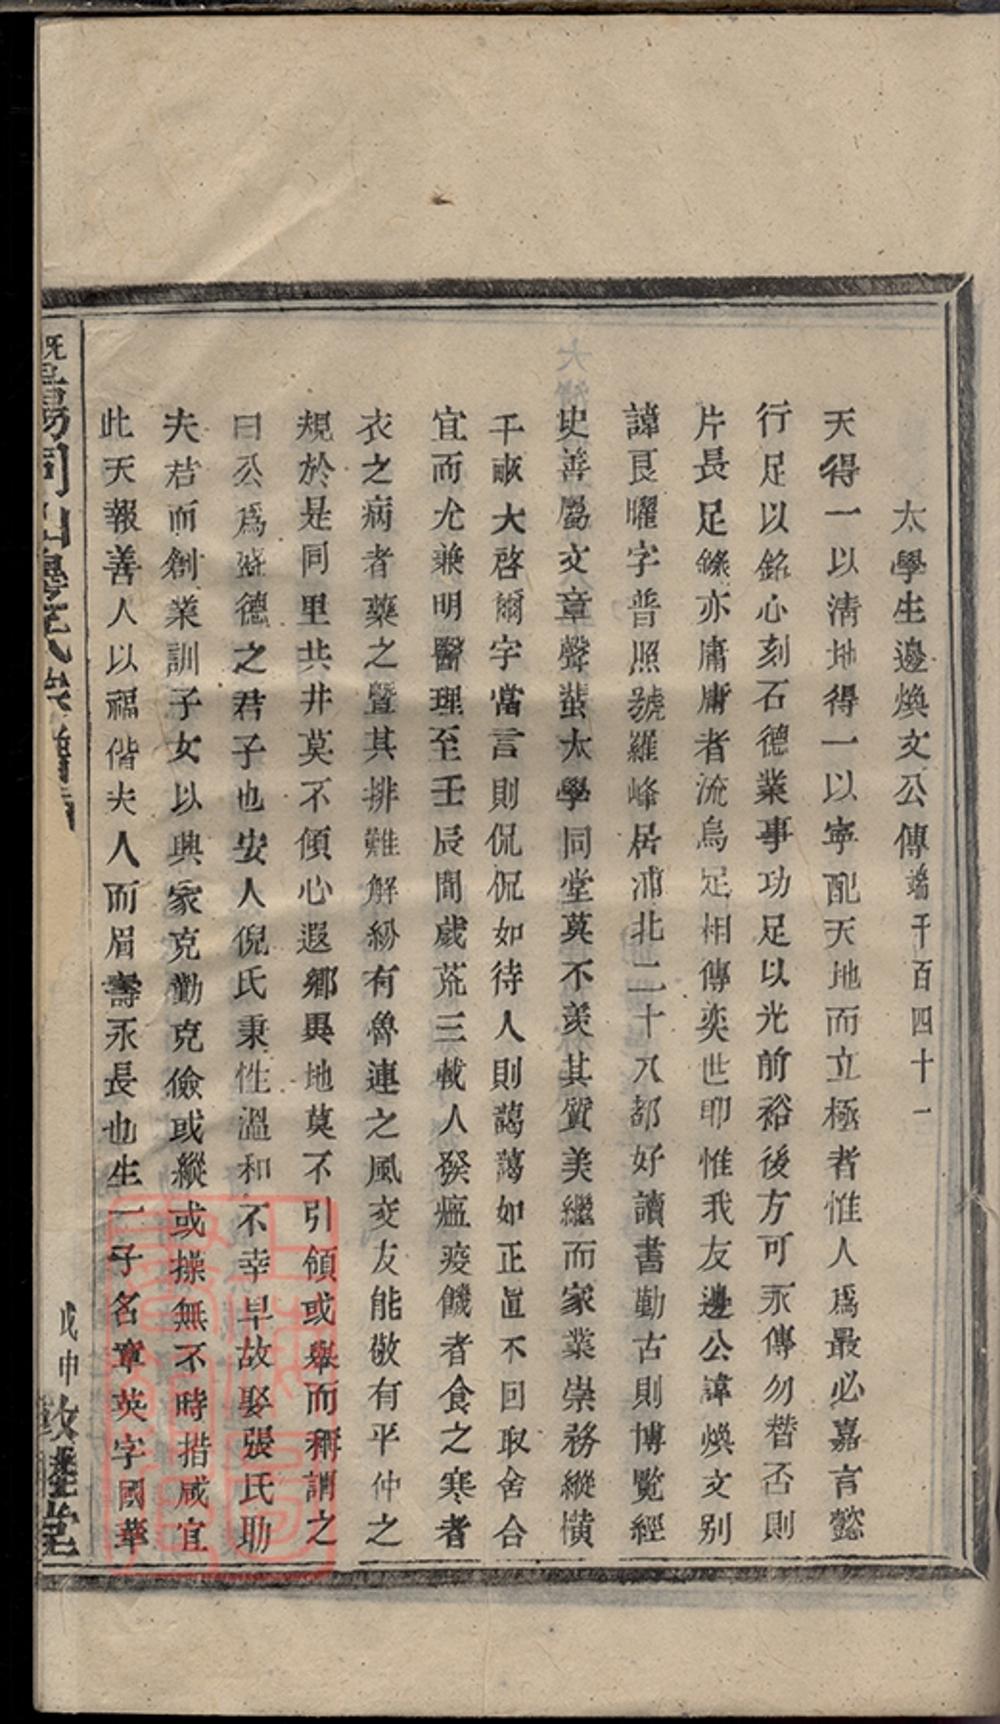 太學生邊煥文公傳端千百四十一
天得一以清地得一以寧配天地而立極者惟人爲最必嘉言懿
行足以銘心刻石德業事功足以光前裕後方可永傳勿替否則
片長足錄亦庸庸者流烏足相傳奕世耶惟我友邊公諱煥文别
諱艮曜字普照號羅峰居浦北二十八都好讀書勤古則博覽經
史善屬文章聲蜚太學同堂莫不羨其質美繼而家業崇務縱橫
千畝大啓爾字當言則侃侃如待人則藹藹如正直不回取舍合
宜而尤兼明醫理至壬辰間歲荒三載人發瘟疫饑者食之寒者
衣之病者藥之曁其排難解紛有魯連之風交友能敬有平仲之
規於是同里共井莫不傾心遐鄉異地莫不引領或舉而稱謂之
曰公爲盛德之君子也安人倪氏秉性溫和不幸早故娶張氏助
夫君而創業訓子女以興家克勤克儉或縱或操無不時措咸宜
此天報善人以福偕夫人而眉壽永長也生一子名章英字國華
曁陽同山邊氏宗譜
戊申
敦睦堂